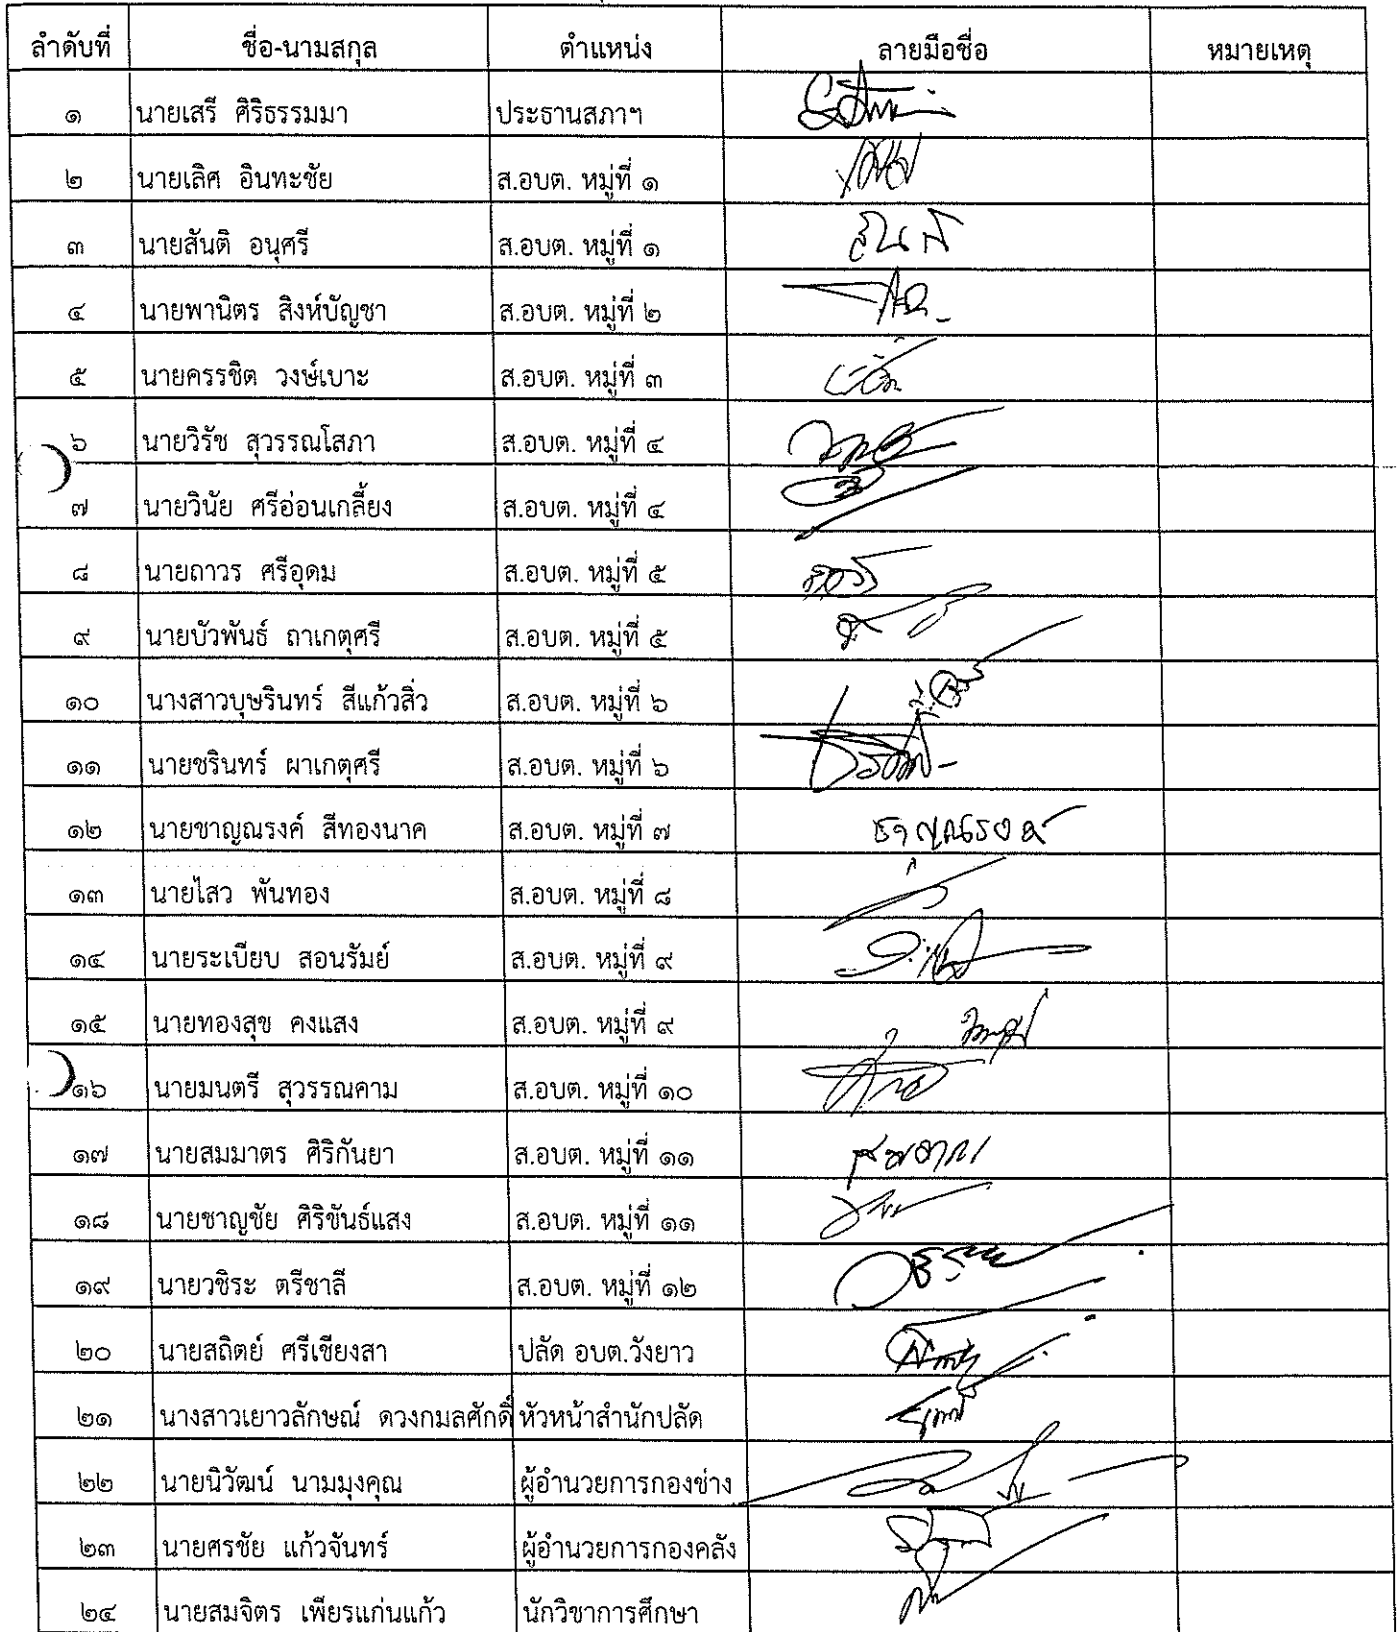 ลำดับที่ ชื่อ-นามสกุล ตำแหน่ง ลายมือชื่อ หมายเหตุ
๑ นายเสรี ศิริธรรมมา ประธานสภาฯ
๒ นายเลิศ อินทะชัย ส.อบต. หมู่ที่ ๑
๓ นายสันติ อนุศรี ส.อบต. หมู่ที่ ๑ สันติ
๔ นายพานิตร สิงห์บัญชา ส.อบต. หมู่ที่ ๒
๕ นายครรชิต วงษ์เบาะ ส.อบต. หมู่ที่ ๓
๖ นายวิรัช สุวรรณโสภา ส.อบต. หมู่ที่ ๔
๗ นายวินัย ศรีอ่อนเกลี้ยง ส.อบต. หมู่ที่ ๔
๘ นายถาวร ศรีอุดม ส.อบต. หมู่ที่ ๕
๙ นายบัวพันธ์ ถาเกตุศรี ส.อบต. หมู่ที่ ๕
๑๐ นางสาวบุษรินทร์ สีแก้วสิ่ว ส.อบต. หมู่ที่ ๖
๑๑ นายชรินทร์ ผาเกตุศรี ส.อบต. หมู่ที่ ๖
๑๒ นายชาญณรงค์ สีทองนาค ส.อบต. หมู่ที่ ๗ ชาญณรงค์
๑๓ นายไสว พันทอง ส.อบต. หมู่ที่ ๘
๑๔ นายระเบียบ สอนรัมย์ ส.อบต. หมู่ที่ ๙
๑๕ นายทองสุข คงแสง ส.อบต. หมู่ที่ ๙
๑๖ นายมนตรี สุวรรณคาม ส.อบต. หมู่ที่ ๑๐
๑๗ นายสมมาตร ศิริกันยา ส.อบต. หมู่ที่ ๑๑
๑๘ นายชาญชัย ศิริขันธ์แสง ส.อบต. หมู่ที่ ๑๑
๑๙ นายวชิระ ตรีชาลี ส.อบต. หมู่ที่ ๑๒
๒๐ นายสถิตย์ ศรีเชียงสา ปลัด อบต.วังยาว
๒๑ นางสาวเยาวลักษณ์ ดวงกมลศักดิ์ หัวหน้าสำนักปลัด
๒๒ นายนิวัฒน์ นามมุงคุณ ผู้อำนวยการกองช่าง
๒๓ นายศรชัย แก้วจันทร์ ผู้อำนวยการกองคลัง
๒๔ นายสมจิตร เพียรแก่นแก้ว นักวิชาการศึกษา